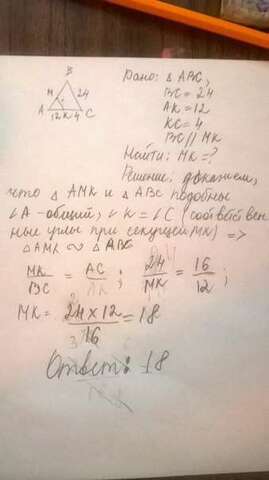 B
Дано: △ABC,
M
24
BC = 24
A 12 K 4 C
AK = 12
KC = 4
BC // MK
Найти: MK = ?
Решение: докажем,
что △AMK и △ABC подобны
∠A - общий; ∠K = ∠C (соответствен
ные углы при секущей MK) =>
△AMK ∾ △ABC
MK/BC = AC/AK ; 24/MK = 16/12 ;
MK = 24 × 12 / 16 = 18
Ответ: 18